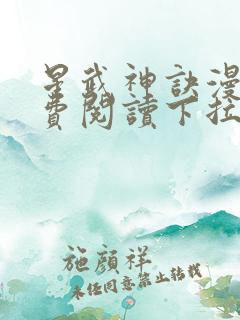 星武神訣漫
費閱讀下拉
施顔祥
未经同意禁止转载